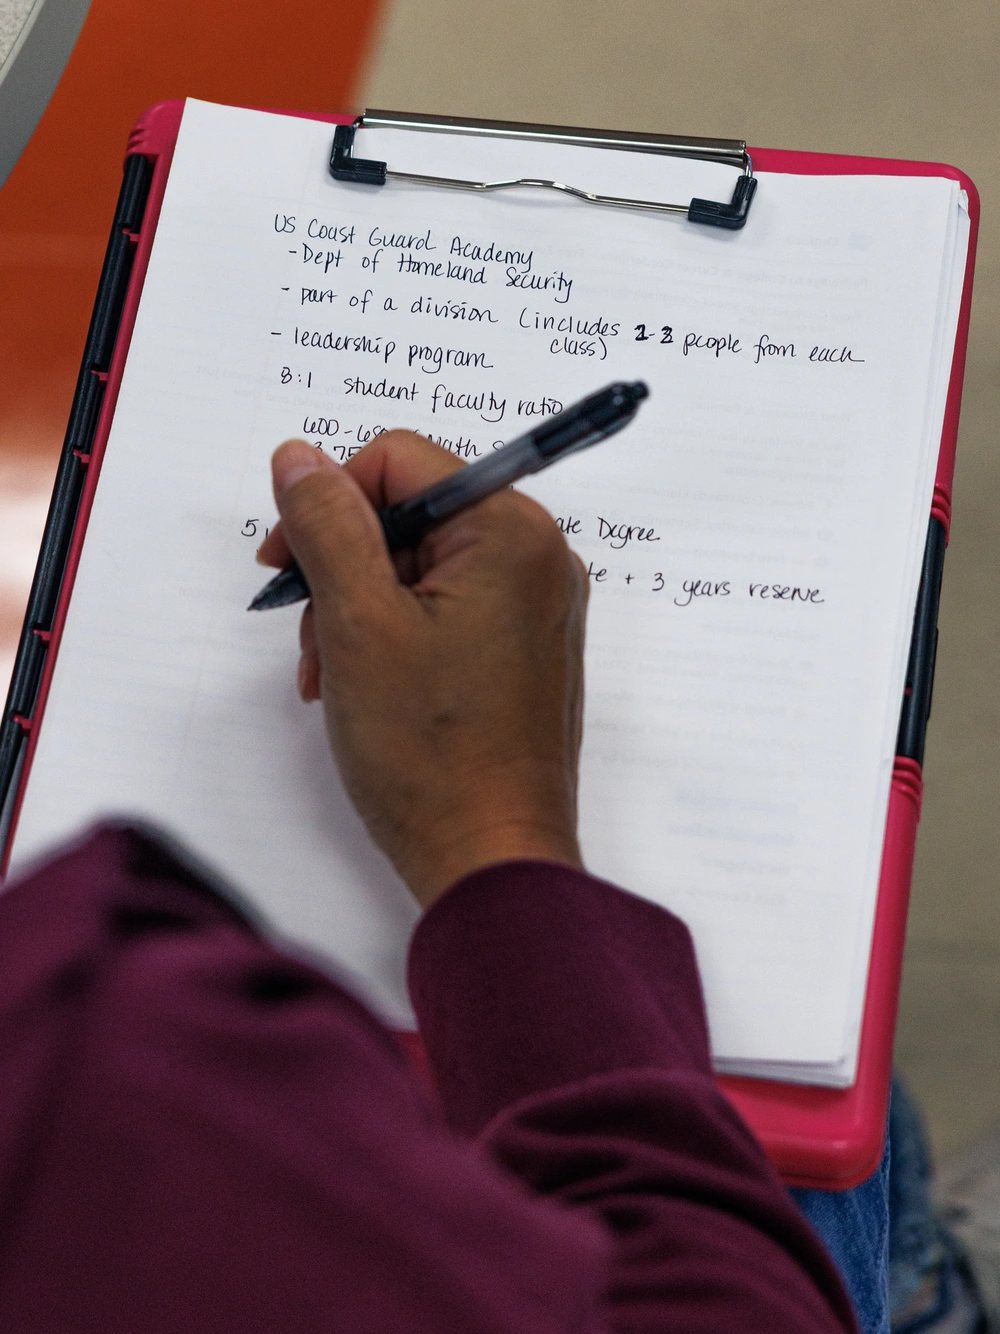 US Coast Guard Academy
-Dept of Homeland Security
- part of a division (includes 2-3 people from each
class)
- leadership program
8:1 student faculty ratio
600-650 Math
3.75
5 Degree
+ 3 years reserve